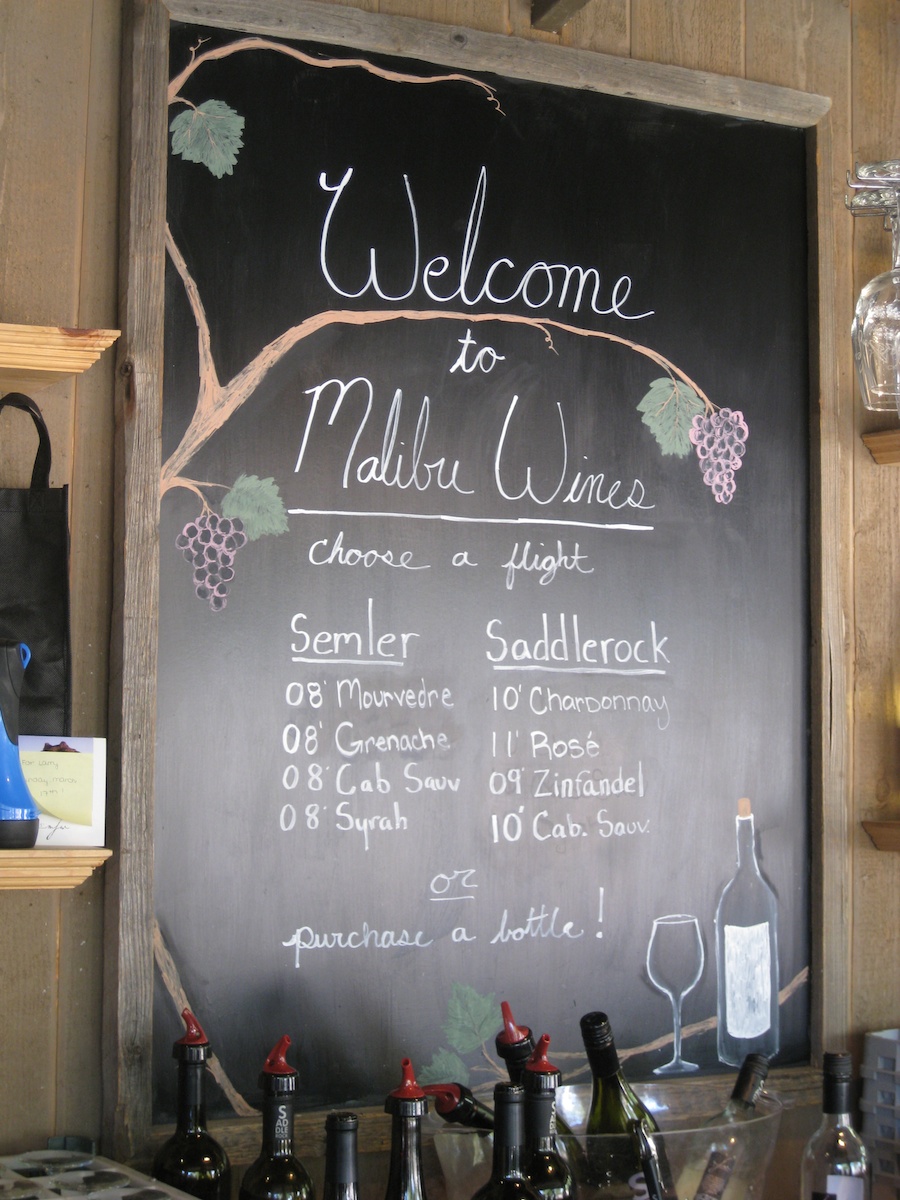 Welcome
to
Malibu Wines
choose a flight
Semler
08' Mourvedre
08' Grenache
08' Cab Sauv
08' Syrah
Saddlerock
10' Chardonnay
11' Rosé
09' Zinfandel
10' Cab. Sauv.
or
purchase a bottle!
For Larry
SADDLE